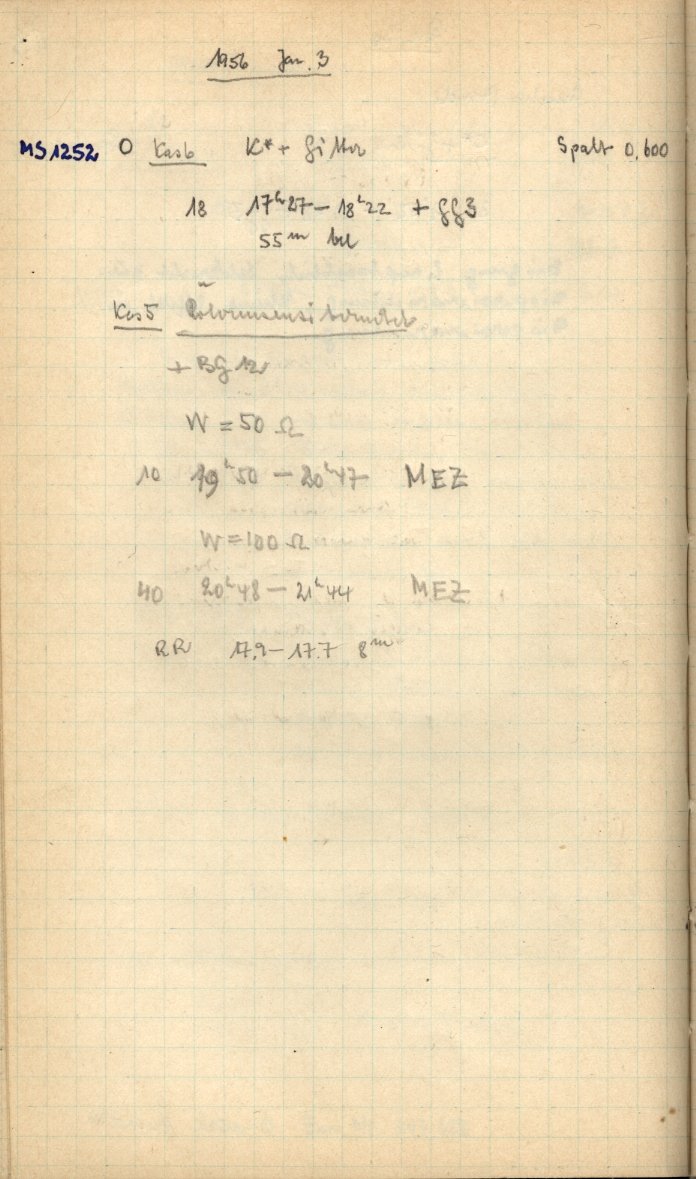 1956 Jan. 3
MS1252 O Kas6 K* + Gitter Spalt 0,600
18 17ʰ27 – 18ʰ22 + GG3
55ᵐ bel
Kas5
+ BG12
W = 50 Ω
10 19ʰ50 – 20ʰ47 MEZ
W = 100 Ω
40 20ʰ48 – 21ʰ44 MEZ
RR 17.9 – 17.7 8ᵐ